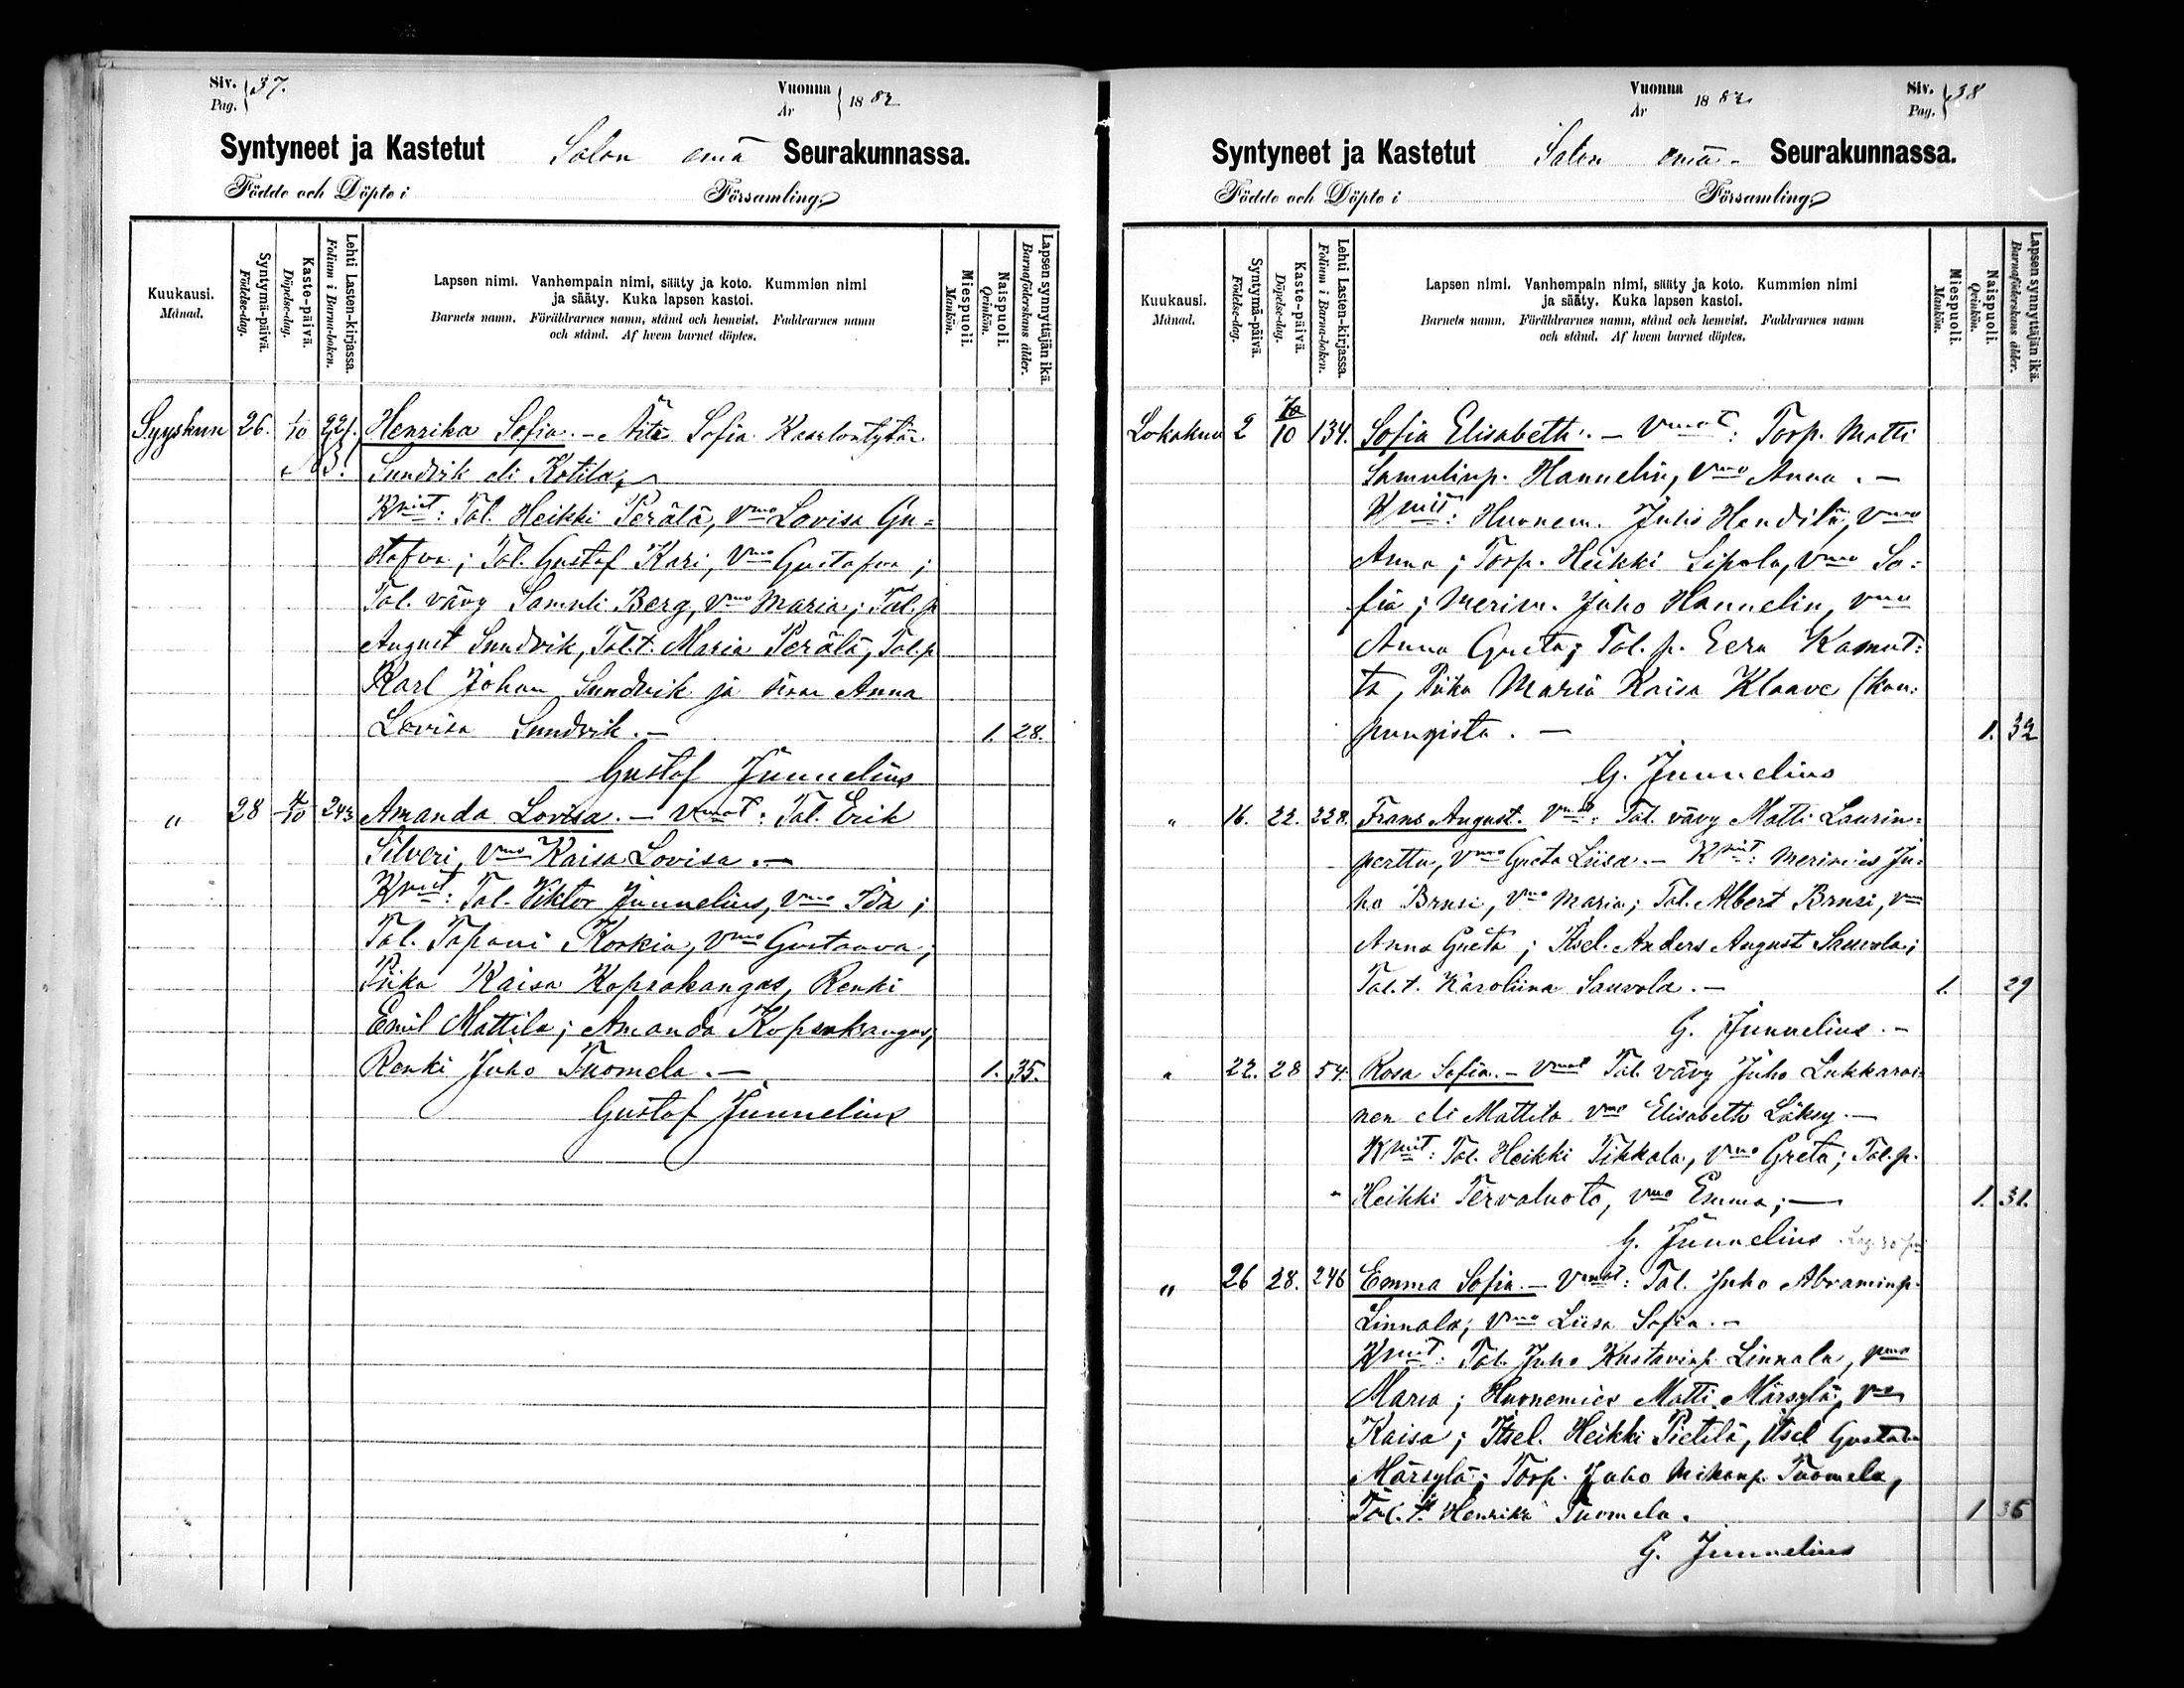 Siv. Pag. 37.
Vuonna År 1882
Syntyneet ja Kastetut Salon emä Seurakunnassa.
Födde och Döpte i Församling.
Kuukausi. Månad.
Syntymä-päivä. Födelse-dag.
Kaste-päivä. Döpelse-dag.
Lehti Lasten-kirjassa. Folium i Barna-boken.
Lapsen nimi. Vanhempain nimi, sääty ja koto. Kummien nimi
ja sääty. Kuka lapsen kastoi.
Barnets namn. Föräldrarnes namn, stånd och hemvist. Faddrarnes namn
och stånd. Af hvem barnet döptes.
Miespuoli. Mankön.
Naispuoli. Qvinkön.
Lapsen synnyttäjän ikä. Barnaföderskans ålder.
Syyskuu 26. 1/10 221. Henrika Sofia. – Äiti Sofia Kaarlontytär
Sundvik eli Kotila;
Kmit: Tal. Heikki Perälä, Vmo Lovisa Gu=
stafva; Tal. Gustaf Kari, Vmo Gustafva;
Tal. vävy Samuli Berg, Vmo Maria; Tal. p
August Sundvik, Tal.t. Maria Perälä, Tal.p
Karl Johan Sundvik ja Anna
Lovisa Sundvik. – 1. 28.
Gustaf Junnelius
" 28 4/10 243 Amanda Lovisa. – Vmat: Tal. Erik
Silveri, Vmo Kaisa Lovisa. –
Kmit: Tal. Viktor Junnelius, Vmo Ida;
Tal. Tapani Korkia, Vmo Gustaava;
Piika Kaisa Koprakangas, Renki
Emil Mattila; Amanda Koprakangas,
Renki Juho Tuomela. – 1. 35.
Gustaf Junnelius
Siv. Pag. 38
Vuonna År 1882
Syntyneet ja Kastetut Salon emä- Seurakunnassa.
Födde och Döpte i Församling.
Kuukausi. Månad.
Syntymä-päivä. Födelse-dag.
Kaste-päivä. Döpelse-dag.
Lehti Lasten-kirjassa. Folium i Barna-boken.
Lapsen nimi. Vanhempain nimi, sääty ja koto. Kummien nimi
ja sääty. Kuka lapsen kastoi.
Barnets namn. Föräldrarnes namn, stånd och hemvist. Faddrarnes namn
och stånd. Af hvem barnet döptes.
Miespuoli. Mankön.
Naispuoli. Qvinkön.
Lapsen synnyttäjän ikä. Barnaföderskans ålder.
Lokakuu 2 10 134. Sofia Elisabeth. – Vmat: Torp. Matti
Samulinp. Hannelin, Vmo Anna. –
Kmit: Huonem. Juho Handila, Vmo
Anna; Torp. Heikki Sipola, Vmo So=
fia; Merim. Juho Hannelin, Vmo
Anna Greta; Tal. p. Eera Kamut=
ta, Piika Maria Kaisa Klaave (kau=
pungista. – 1. 32
G. Junnelius
" 16. 22. 228. Frans August. Vmat: Tal. vävy Matti Laurin=
perttu, Vmo Greta Liisa. – Kmit: Merimies Ju=
ho Brusi, Vmo Maria; Tal. Albert Brusi, Vmo
Anna Greta; Itsel. Anders August Sauvola;
Tal.t. Karoliina Sauvola. – 1. 29
G. Junnelius. –
" 22. 28 54. Rosa Sofia. – Vmat Tal. vävy Juho Lukkaroi=
nen eli Mattila Vmo Elisabeth Läksy. –
Kmit: Tal. Heikki Tikkala, Vmo Greta; Tal.p.
Heikki Tervaluoto, Vmo Emma; – 1. 31.
G. Junnelius
" 26 28. 246 Emma Sofia. – Vmat: Tal. Juho Abraminp.
Linnala; Vmo Liisa Sofia. –
Kmit: Tal. Juho Kustavinp. Linnala, Vmo
Maria; Huonemies Matti Märsylä, Vmo
Kaisa; Itsel. Heikki Pietilä, Itsel Gustava
Märsylä; Torp. Juho Mikonp. Tuomela,
Tal.t. Henrika Tuomela. 1 36
G. Junnelius